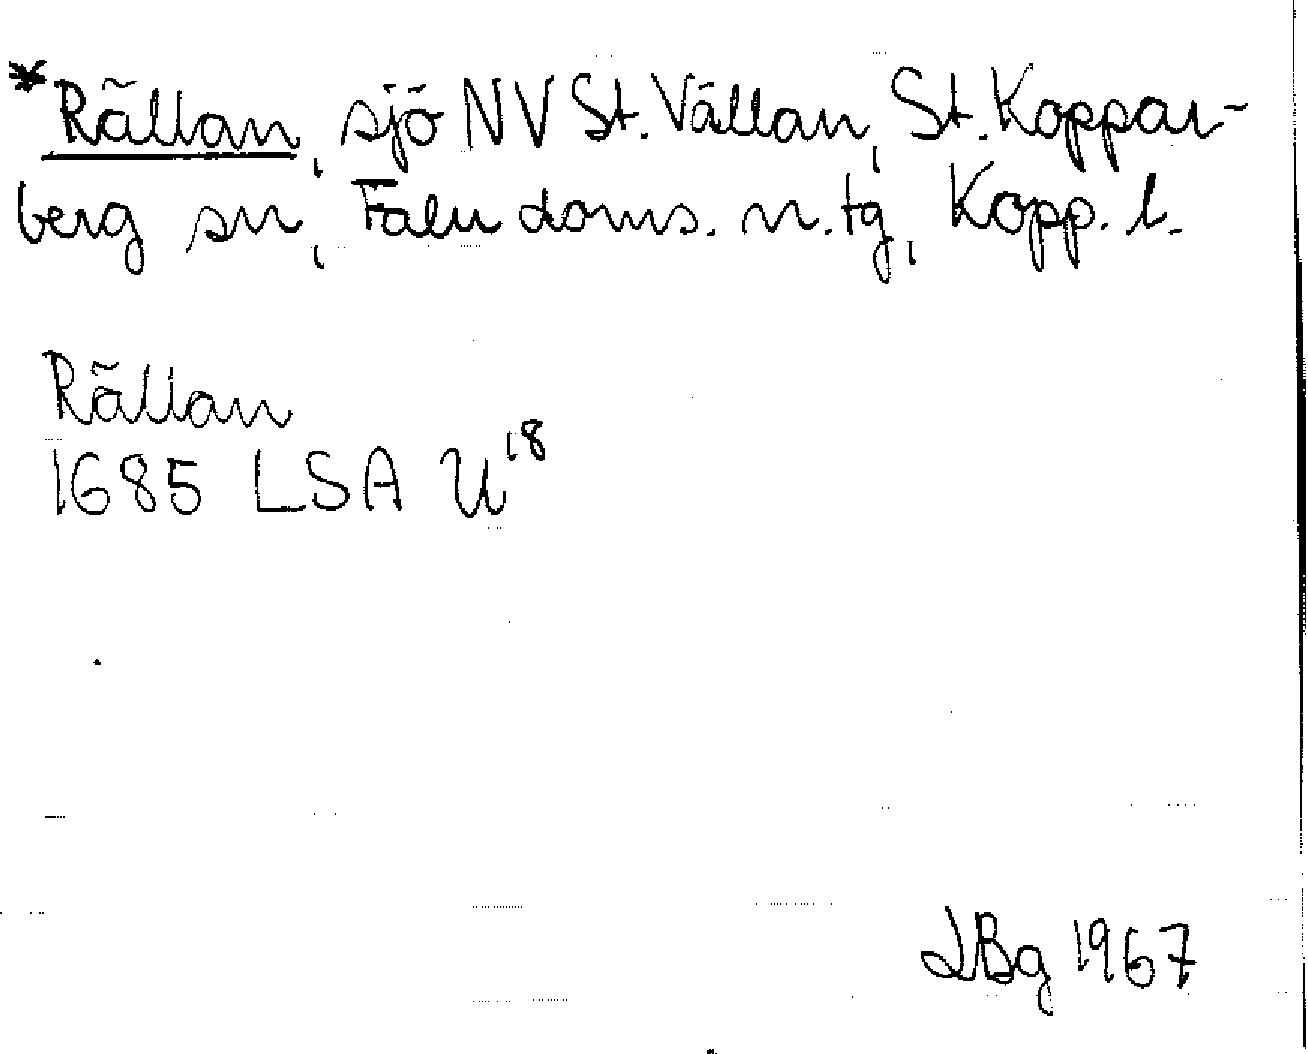 *Rällan, sjö NV St. Vällan, St. Koppar-
berg sn, Falu doms. n. tg, Kopp. l.
Rällan
1685 LSA U18
JBg 1967